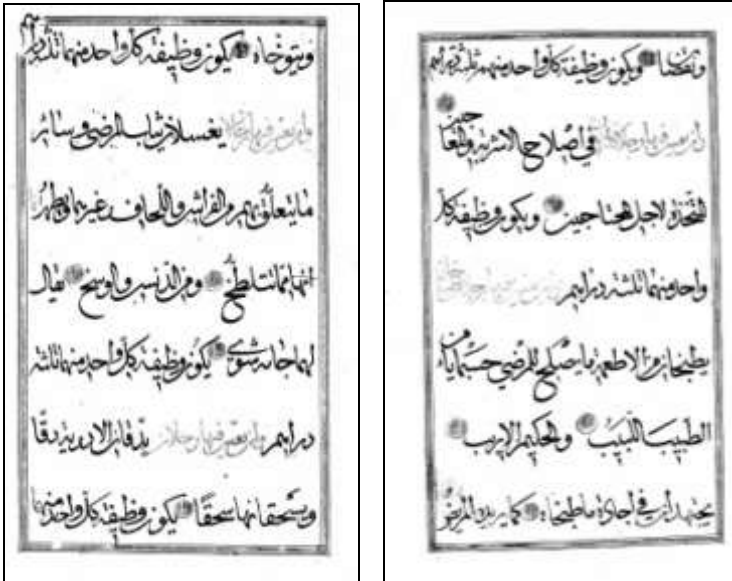 ويكون وظيفة كل واحد منهم ثلثة دراهم
وان يعين فيها رجلان في اصلاح الاشربة والمعاجين
المتخذة لاجل المحتاجين ويكون وظيفة كل
واحد منهما ثلثة دراهم وان يعين فيها رجلان
يطبخان من الاطعمة ما يصلح للمرضى حسبما يامر
الطبيب اللبيب والحكيم الاريب
يجتهدان في اجادة ما طبخاه كما يريده المريض
ويتوخاه يكون وظيفة كل واحد منهما ثلثة دراهم
وان يعين فيها رجلان يغسلان ثياب المرضى وسائر
ما يتعلق بهم من الفراش واللحاف وغيرهما ويطهر
انها مما تتلطخ به من الدنس والوسخ يقال
لهما جامه شوى يكون وظيفة كل واحد منهما ثلثة
دراهم وان يعين فيها رجلان يدقان الادوية دقا
ويسحقانها سحقا يكون وظيفة كل واحد منهما